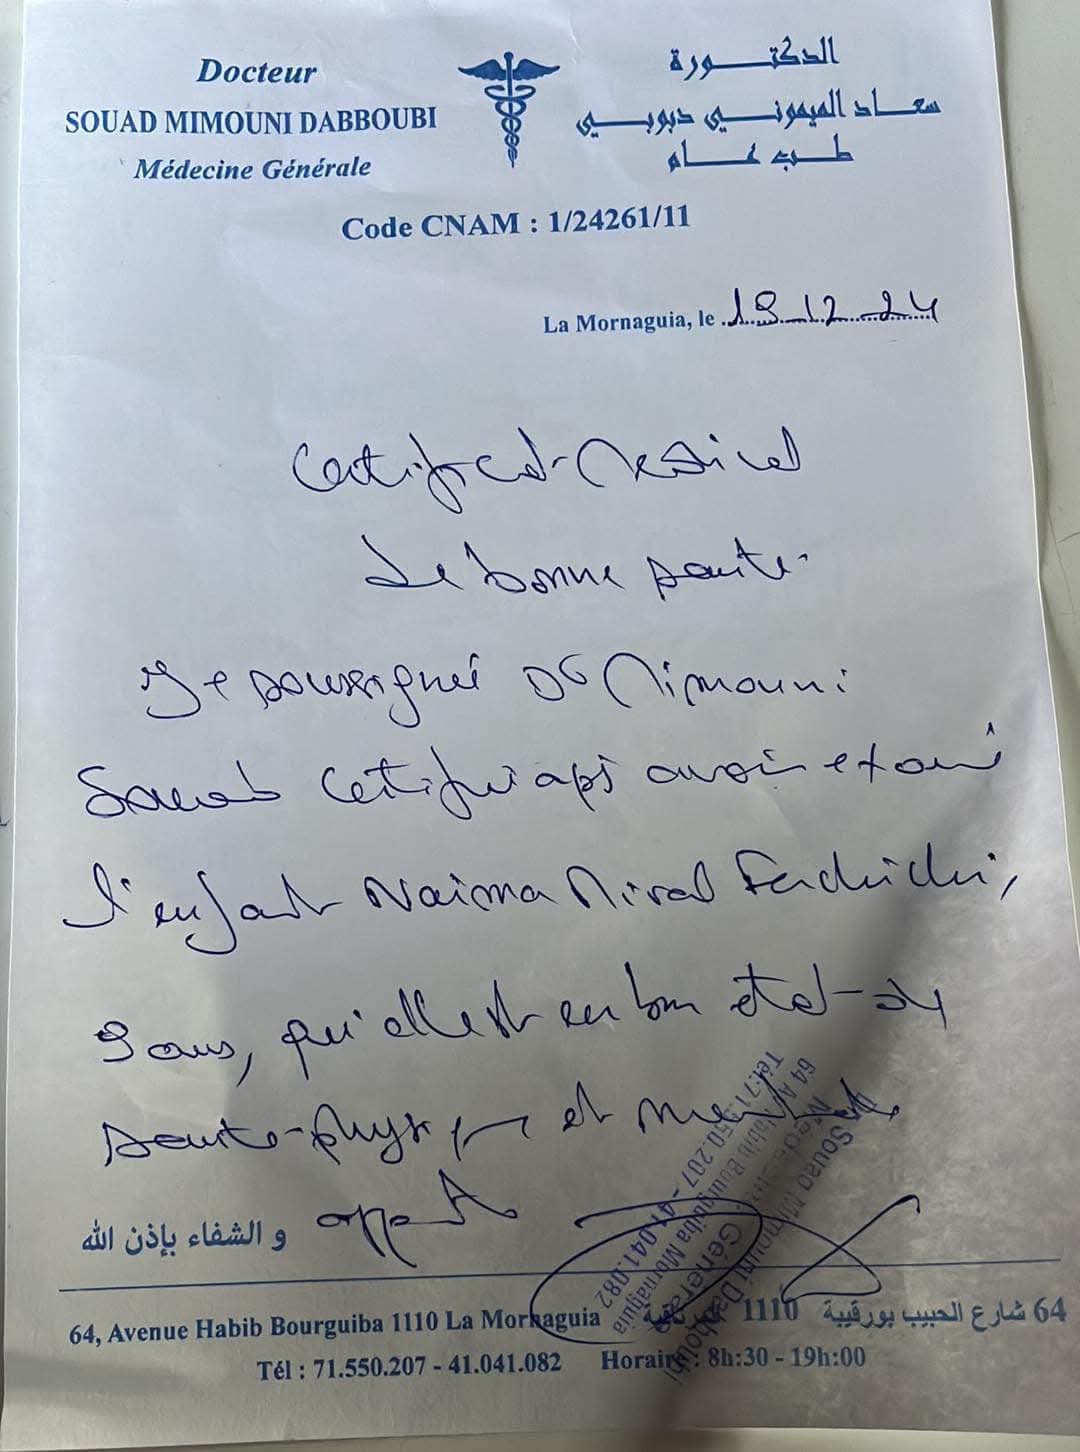 Docteur
SOUAD MIMOUNI DABBOUBI
Médecine Générale
الدكتورة
سعاد الميموني دبوبي
طب عام
Code CNAM : 1/24261/11
La Mornaguia, le 19.12.24
Certificat Medical
de bonne sante
Je soussigné Dr Mimouni
Souad certifie après avoir examiné
l'enfant Naima Miral Ferchichi,
9 ans, qu'elle est en bon état de
sante physique et mentale
apparente
و الشفاء بإذن الله
64, Avenue Habib Bourguiba 1110 La Mornaguia
64 شارع الحبيب بورقيبة 1110 المرناقية
Tél : 71.550.207 - 41.041.082 Horaire : 8h:30 - 19h:00
Dr Souad Mimouni Dabboubi
Médecine Générale
64 Av Habib Bourguiba Mornaguia
Tél:71.550.207 - 41.041.082